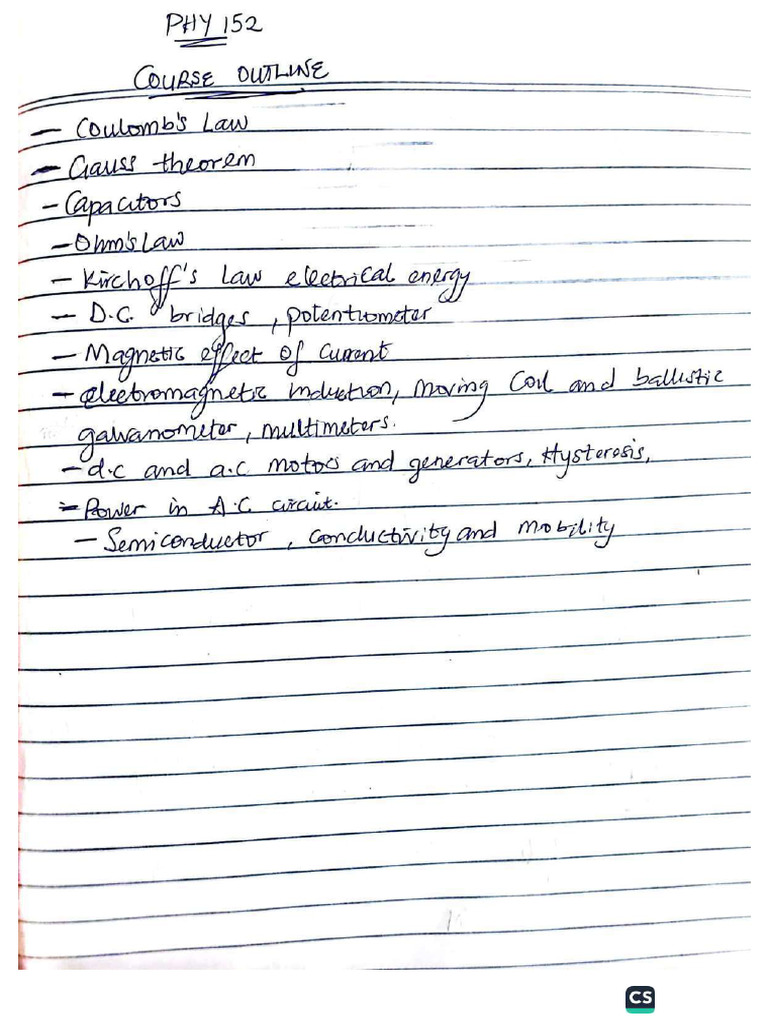 PHY 152
COURSE OUTLINE
- Coulomb's Law
- Gauss theorem
- Capacitors
- Ohm's Law
- Kirchoff's Law electrical energy
- D.C. bridges, potentiometer
- Magnetic effect of Current
- electromagnetic induction, moving Coil and ballistic
galvanometer, multimeters.
- d.c and a.c motors and generators, Hysterosis,
- Power in A.C circuit.
- Semiconductor, conductivity and mobility
CS